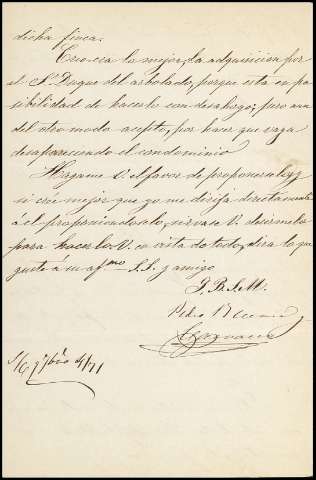 dicha finca.
Creo era lo mejor, la adquisicion por
el Sr. Duque del arbolado, porque está en po
sibilidad de hacerlo con desahogo; pero aun
del otro modo acepto, por hacer que vaya
desapareciendo el condominio
Hagame V. el favor de proponerselo, y
si cree mejor que yo me dirija directamente
á él proponiendoselo, sirvase V. decirmelo
para hacerlo. V. en vista de todo, dirá lo que
guste á su afmo. S.S. y amigo
Q.B.S.M.
Pedro
S/C 4/71